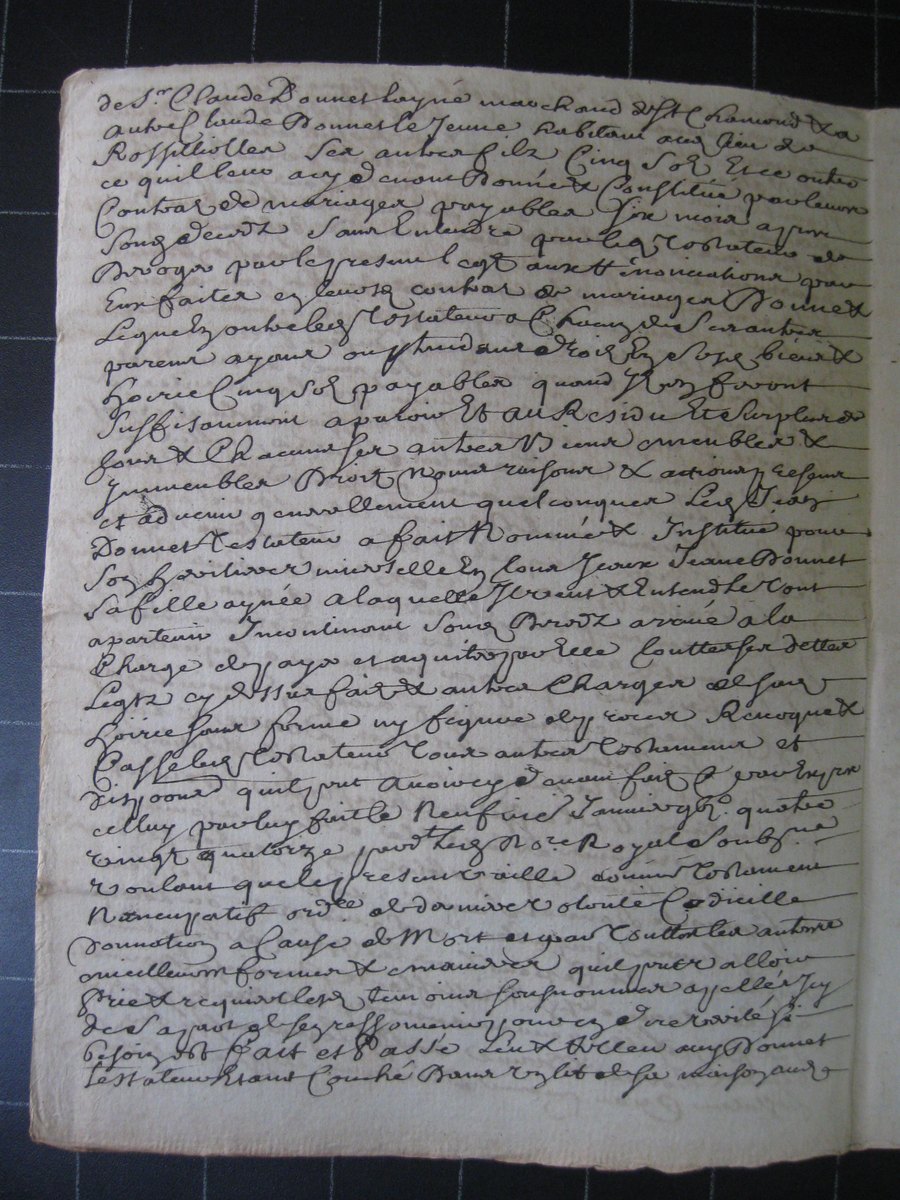 de Sr Claude Donnet layné marchand de St Chamond & a
autre Claude Donnet le Jeune habitant au lieu de
ses autres filz Cinq solz Et ce outre
ce quil leur a cy devant Donné & Constitué par leurs
Contratz de mariages payables six mois apres
sond deceds sans Entendre par led testateur de
par le present legt aux renonciations par
Eux faites en leursd contratz de mariages Donne &
Legue En outre led testateur a Chacun de Ses autres
parens ayans ou pretendans droit En Sesd biens &
hoirie Cinq solz payables quand Ilz En feront
suffisamment aparoir Et au Residu Et surplus de
tous & Chacuns ses autres Biens meubles &
Immeubles Droitz Noms raisons & actions presens
et advenir generallement quelconques Led Jean
Donnet Testateur a fait Nommé & Institué pour
son heritiere universelle Jeane Donnet
sa fille aynée a laquelle Il veut & Entend le tout
apartenir Incontinent sond Deceds arrivé a la
Charge de payer et aquiter par Elle touttes ses dettes
Legtz cy dessus faitz & autres Charges de sad
hoirie sans forme ny figure de proces Revoque &
Casse led testateur tous autres testamens et
quil peut Avoir cy devant faitz & par Expres
celluy par luy fait le Neufvie Janvier quatre
vingt quatorze pard led No.re Royal Soubsne
voulant que le present vaille comme testament
Nuncupatif ordre et derniere volonté Codicille
Donnation a Cause de Mort et par touttes les autres
meilleures formes & manieres quil peut valloir
Prie & requiert les tesmoins sousnommes apellés Icy
de Sa part
besoin est Fait et Passé Leu & aud Donnet
testateur Estant Couché Dans un lit de sa maison aud